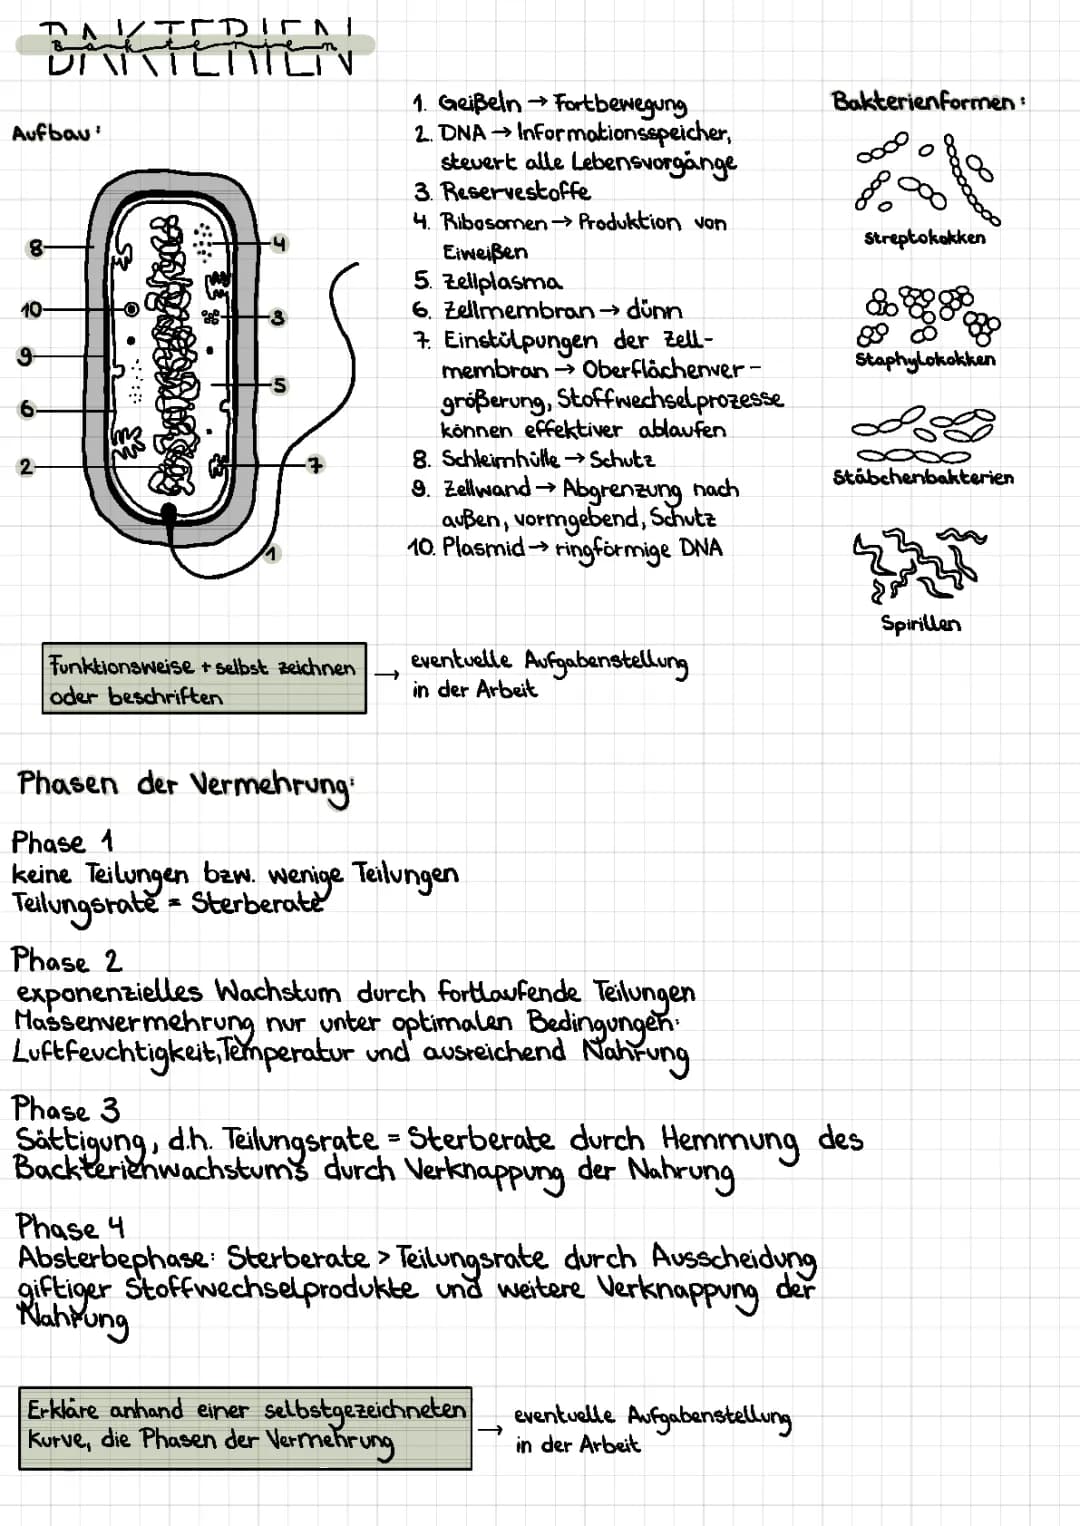 BAKTERIEN
Bakterien
Aufbau:
8
10
9
6
2
4
3
5
7
1
1. Geißeln → Fortbewegung
2. DNA → Informationsspeicher,
steuert alle Lebensvorgänge
3. Reservestoffe
4. Ribosomen → Produktion von
Eiweißen
5. Zellplasma
6. Zellmembran → dünn
7. Einstülpungen der Zell-
membran → Oberflächenver-
größerung, Stoffwechselprozesse
können effektiver ablaufen
8. Schleimhülle → Schutz
9. Zellwand → Abgrenzung nach
außen, vormgebend, Schutz
10. Plasmid → ringförmige DNA
Bakterienformen:
Streptokokken
Staphylokokken
Stäbchenbakterien
Spirillen
Funktionsweise + selbst zeichnen
oder beschriften
→ eventuelle Aufgabenstellung
in der Arbeit
Phasen der Vermehrung:
Phase 1
keine Teilungen bzw. wenige Teilungen
Teilungsrate = Sterberate
Phase 2
exponenzielles Wachstum durch fortlaufende Teilungen
Massenvermehrung nur unter optimalen Bedingungen:
Luftfeuchtigkeit, Temperatur und ausreichend Nahrung
Phase 3
Sättigung, d.h. Teilungsrate = Sterberate durch Hemmung des
Backterienwachstums durch Verknappung der Nahrung
Phase 4
Absterbephase: Sterberate > Teilungsrate durch Ausscheidung
giftiger Stoffwechselprodukte und weitere Verknappung der
Nahrung
Erkläre anhand einer selbstgezeichneten
Kurve, die Phasen der Vermehrung
→ eventuelle Aufgabenstellung
in der Arbeit